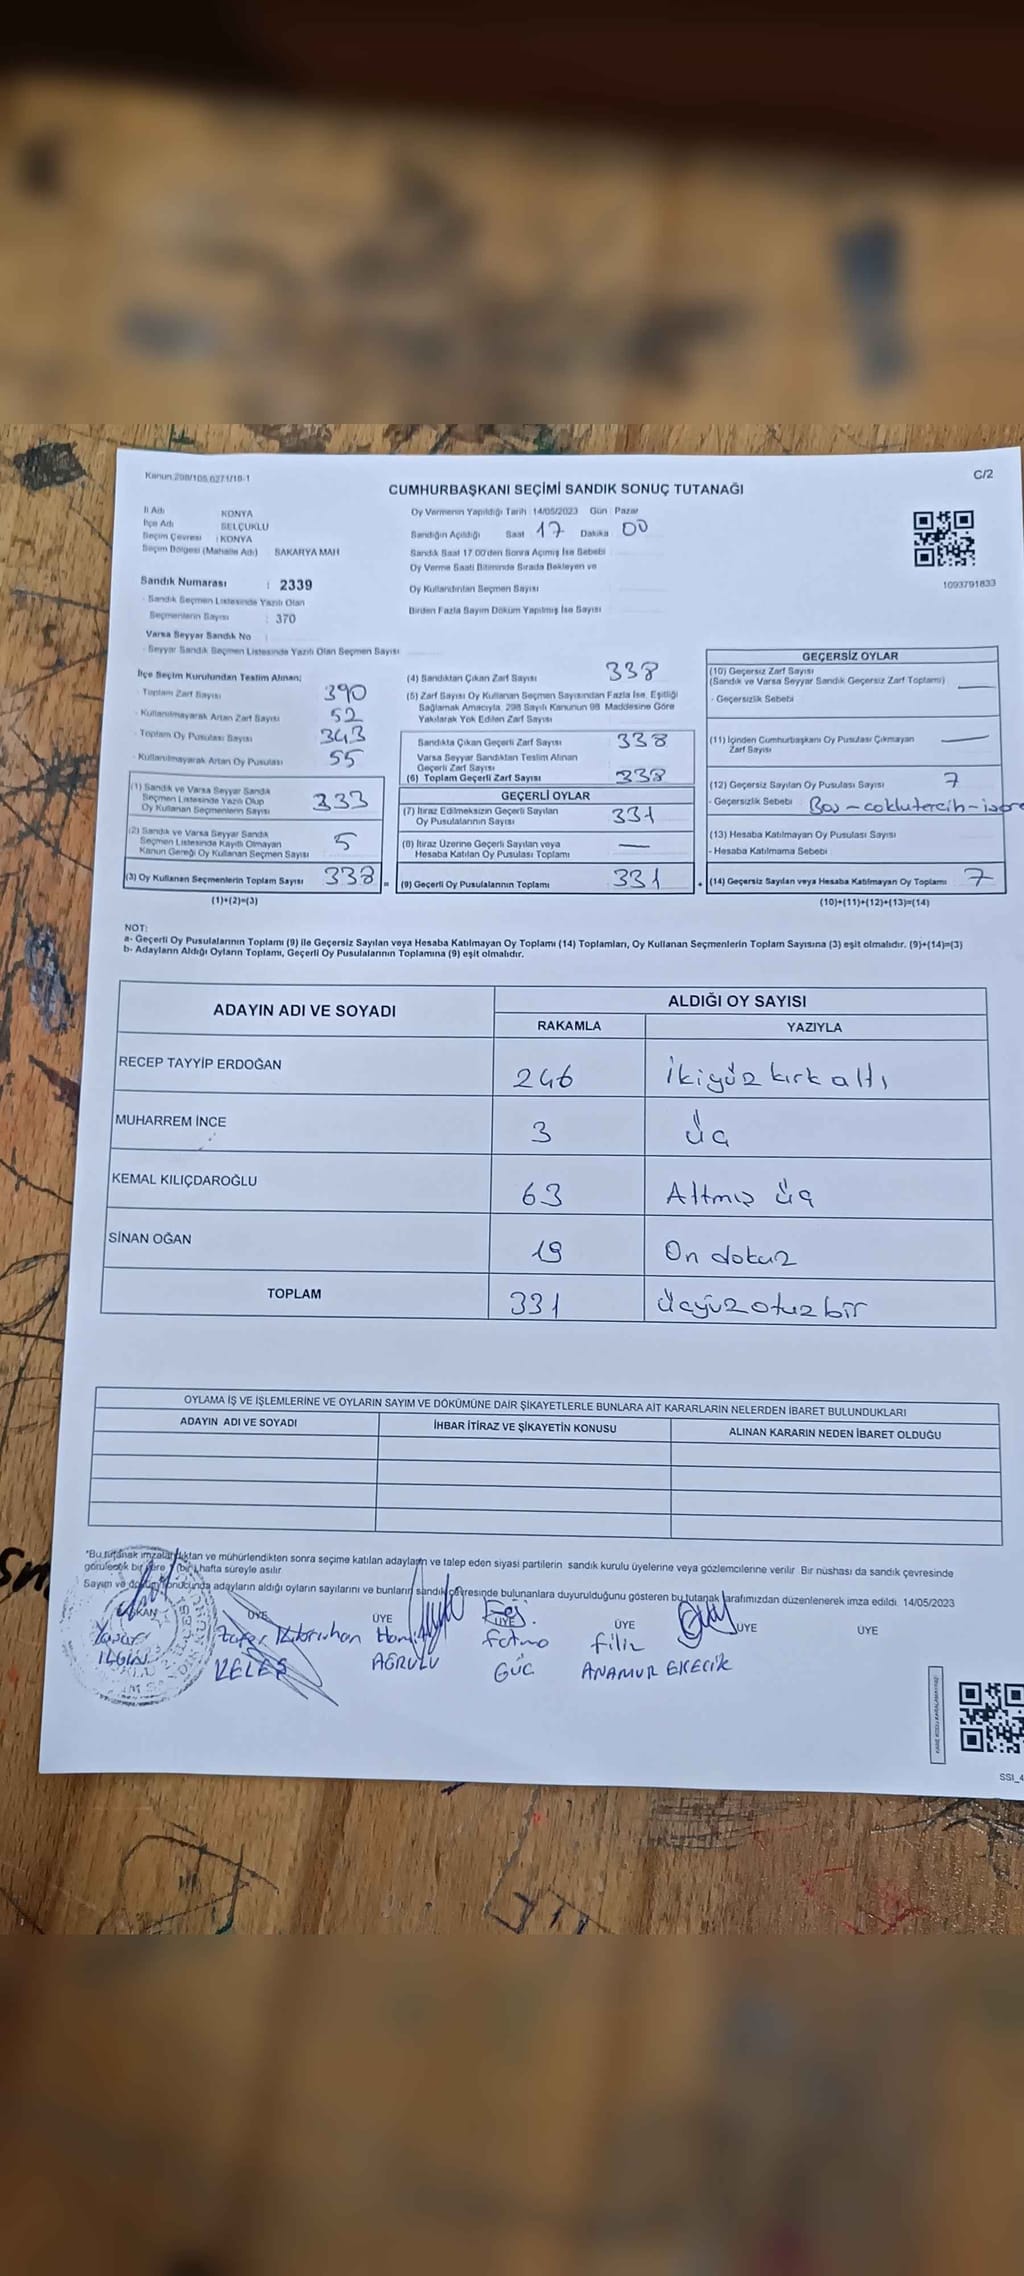 Kanun:298/105,6271/18-1
C/2
CUMHURBAŞKANI SEÇİMİ SANDIK SONUÇ TUTANAĞI
İl Adı KONYA
İlçe Adı SELÇUKLU
Seçim Çevresi : KONYA
Seçim Bölgesi (Mahalle Adı) SAKARYA MAH
Sandık Numarası : 2339
- Sandık Seçmen Listesinde Yazılı Olan
Seçmenlerin Sayısı : 370
Varsa Seyyar Sandık No
- Seyyar Sandık Seçmen Listesinde Yazılı Olan Seçmen Sayısı
Oy Vermenin Yapıldığı Tarih : 14/05/2023 Gün : Pazar
Sandığın Açıldığı Saat 17 Dakika 00
Sandık Saat 17:00'den Sonra Açımış İse Sebebi
Oy Verme Saati Bitiminde Sırada Bekleyen ve
Oy Kullandırılan Seçmen Sayısı
Birden Fazla Sayım Döküm Yapılmış İse Sayısı
1093791833
İlçe Seçim Kurulundan Teslim Alınan;
- Toplam Zarf Sayısı 390
- Kullanılmayarak Artan Zarf Sayısı 52
- Toplam Oy Pusulası Sayısı 343
- Kullanılmayarak Artan Oy Pusulası 55
(1) Sandık ve Varsa Seyyar Sandık
Seçmen Listesinde Yazılı Olup
Oy Kullanan Seçmenlerin Sayısı 333
(2) Sandık ve Varsa Seyyar Sandık
Seçmen Listesinde Kayıtlı Olmayan
Kanun Gereği Oy Kullanan Seçmen Sayısı 5
(3) Oy Kullanan Seçmenlerin Toplam Sayısı 338 =
(1)+(2)=(3)
(4) Sandıktan Çıkan Zarf Sayısı 338
(5) Zarf Sayısı Oy Kullanan Seçmen Sayısından Fazla İse, Eşitliği
Sağlamak Amacıyla, 298 Sayılı Kanunun 98. Maddesine Göre
Yakılarak Yok Edilen Zarf Sayısı
Sandıkta Çıkan Geçerli Zarf Sayısı 338
Varsa Seyyar Sandıktan Teslim Alınan
Geçerli Zarf Sayısı
(6) Toplam Geçerli Zarf Sayısı 338
GEÇERLİ OYLAR
(7) İtiraz Edilmeksizin Geçerli Sayılan
Oy Pusulalarının Sayısı 331
(8) İtiraz Üzerine Geçerli Sayılan veya
Hesaba Katılan Oy Pusulası Toplamı —
(9) Geçerli Oy Pusulalarının Toplamı 331 +
GEÇERSİZ OYLAR
(10) Geçersiz Zarf Sayısı
(Sandık ve Varsa Seyyar Sandık Geçersiz Zarf Toplamı) —
- Geçersizlik Sebebi
(11) İçinden Cumhurbaşkanı Oy Pusulası Çıkmayan
Zarf Sayısı —
(12) Geçersiz Sayılan Oy Pusulası Sayısı 7
- Geçersizlik Sebebi Boş - çoklu tercih -
(13) Hesaba Katılmayan Oy Pusulası Sayısı
- Hesaba Katılmama Sebebi
(14) Geçersiz Sayılan veya Hesaba Katılmayan Oy Toplamı 7
(10)+(11)+(12)+(13)=(14)
NOT:
a- Geçerli Oy Pusulalarının Toplamı (9) ile Geçersiz Sayılan veya Hesaba Katılmayan Oy Toplamı (14) Toplamları, Oy Kullanan Seçmenlerin Toplam Sayısına (3) eşit olmalıdır. (9)+(14)=(3)
b- Adayların Aldığı Oyların Toplamı, Geçerli Oy Pusulalarının Toplamına (9) eşit olmalıdır.
ADAYIN ADI VE SOYADI ALDIĞI OY SAYISI
RAKAMLA YAZIYLA
RECEP TAYYİP ERDOĞAN 246 İkiyüz kırk altı
MUHARREM İNCE 3 Üç
KEMAL KILIÇDAROĞLU 63 Altmış üç
SİNAN OĞAN 19 On dokuz
TOPLAM 331 Üçyüz otuz bir
OYLAMA İŞ VE İŞLEMLERİNE VE OYLARIN SAYIM VE DÖKÜMÜNE DAİR ŞİKAYETLERLE BUNLARA AİT KARARLARIN NELERDEN İBARET BULUNDUKLARI
ADAYIN ADI VE SOYADI İHBAR İTİRAZ VE ŞİKAYETİN KONUSU ALINAN KARARIN NEDEN İBARET OLDUĞU
*Bu tutanak imzalandıktan ve mühürlendikten sonra seçime katılan adayların ve talep eden siyasi partilerin sandık kurulu üyelerine veya gözlemcilerine verilir. Bir nüshası da sandık çevresinde
görülecek bir yere 1 (bir) hafta süreyle asılır.
Sayım ve döküm sonucunda adayların aldığı oyların sayılarını ve bunların sandık çevresinde bulunanlara duyurulduğunu gösteren bu tutanak tarafımızdan düzenlenerek imza edildi. 14/05/2023
BAŞKAN ÜYE ÜYE ÜYE ÜYE ÜYE ÜYE
Yaşar Zafer Fatma Filiz
ILGIN KELEŞ AĞRULU GÜÇ ANAMUR EKECİK
SSI_4